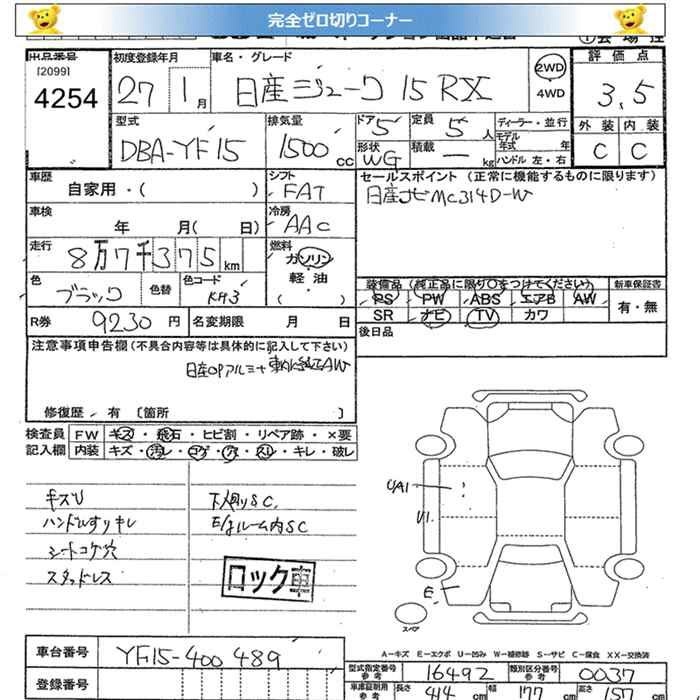 完全ゼロ切りコーナー
出品番号 初度登録年月 車名・グレード 評価点
[2099]
4254 27年 1月 日産ジューク 15RX 2WD 4WD 3.5
型式 排気量 ドア 定員 ディーラー・並行 外装 内装
DBA-YF15 1500cc 5 5人 モデル年式 年 C C
形状 WG 積載 ー kg ハンドル 左・右
車歴 シフト セールスポイント(正常に機能するものに限ります)
自家用・( ) FAT 日産ナビMC314D-W
車検 冷房
年 月( 日) AAC
走行 燃料
8万7千375km ガソリン
軽・油
( ・ )
色 色替 色コード 装備品(純正品に限り○をつけてください) 新車保証書
ブラック KH3 PS PW ABS エアB AW 有・無
SR ナビ TV カワ
R券 9230円 名変期限 月 日 後日品
注意事項申告欄(不具合内容等は具体的に記入して下さい)
日産OPアルミ+車内に純正AW
修復歴 有 〔箇所 〕
検査員 FW キズ・飛石・ヒビ割・リペア跡・×要
記入欄 内装 キズ・汚レ・コゲ・穴・スレ・キレ・破レ
キズU 下廻りSC
ハンドルすりキレ E/gルーム内SC
シートコゲ穴
スタッドレス
ロック車
UA1
U1
E
スペア
A─キズ E─エクボ U─凹み W─補修跡 S─サビ C─腐食 XX─交換済
車台番号 YF15-400489
型式指定番号 参考 16492 類別区分番号 参考 0037
登録番号 車庫証明用 参考 長さ 414cm 幅 177cm 高さ 157cm